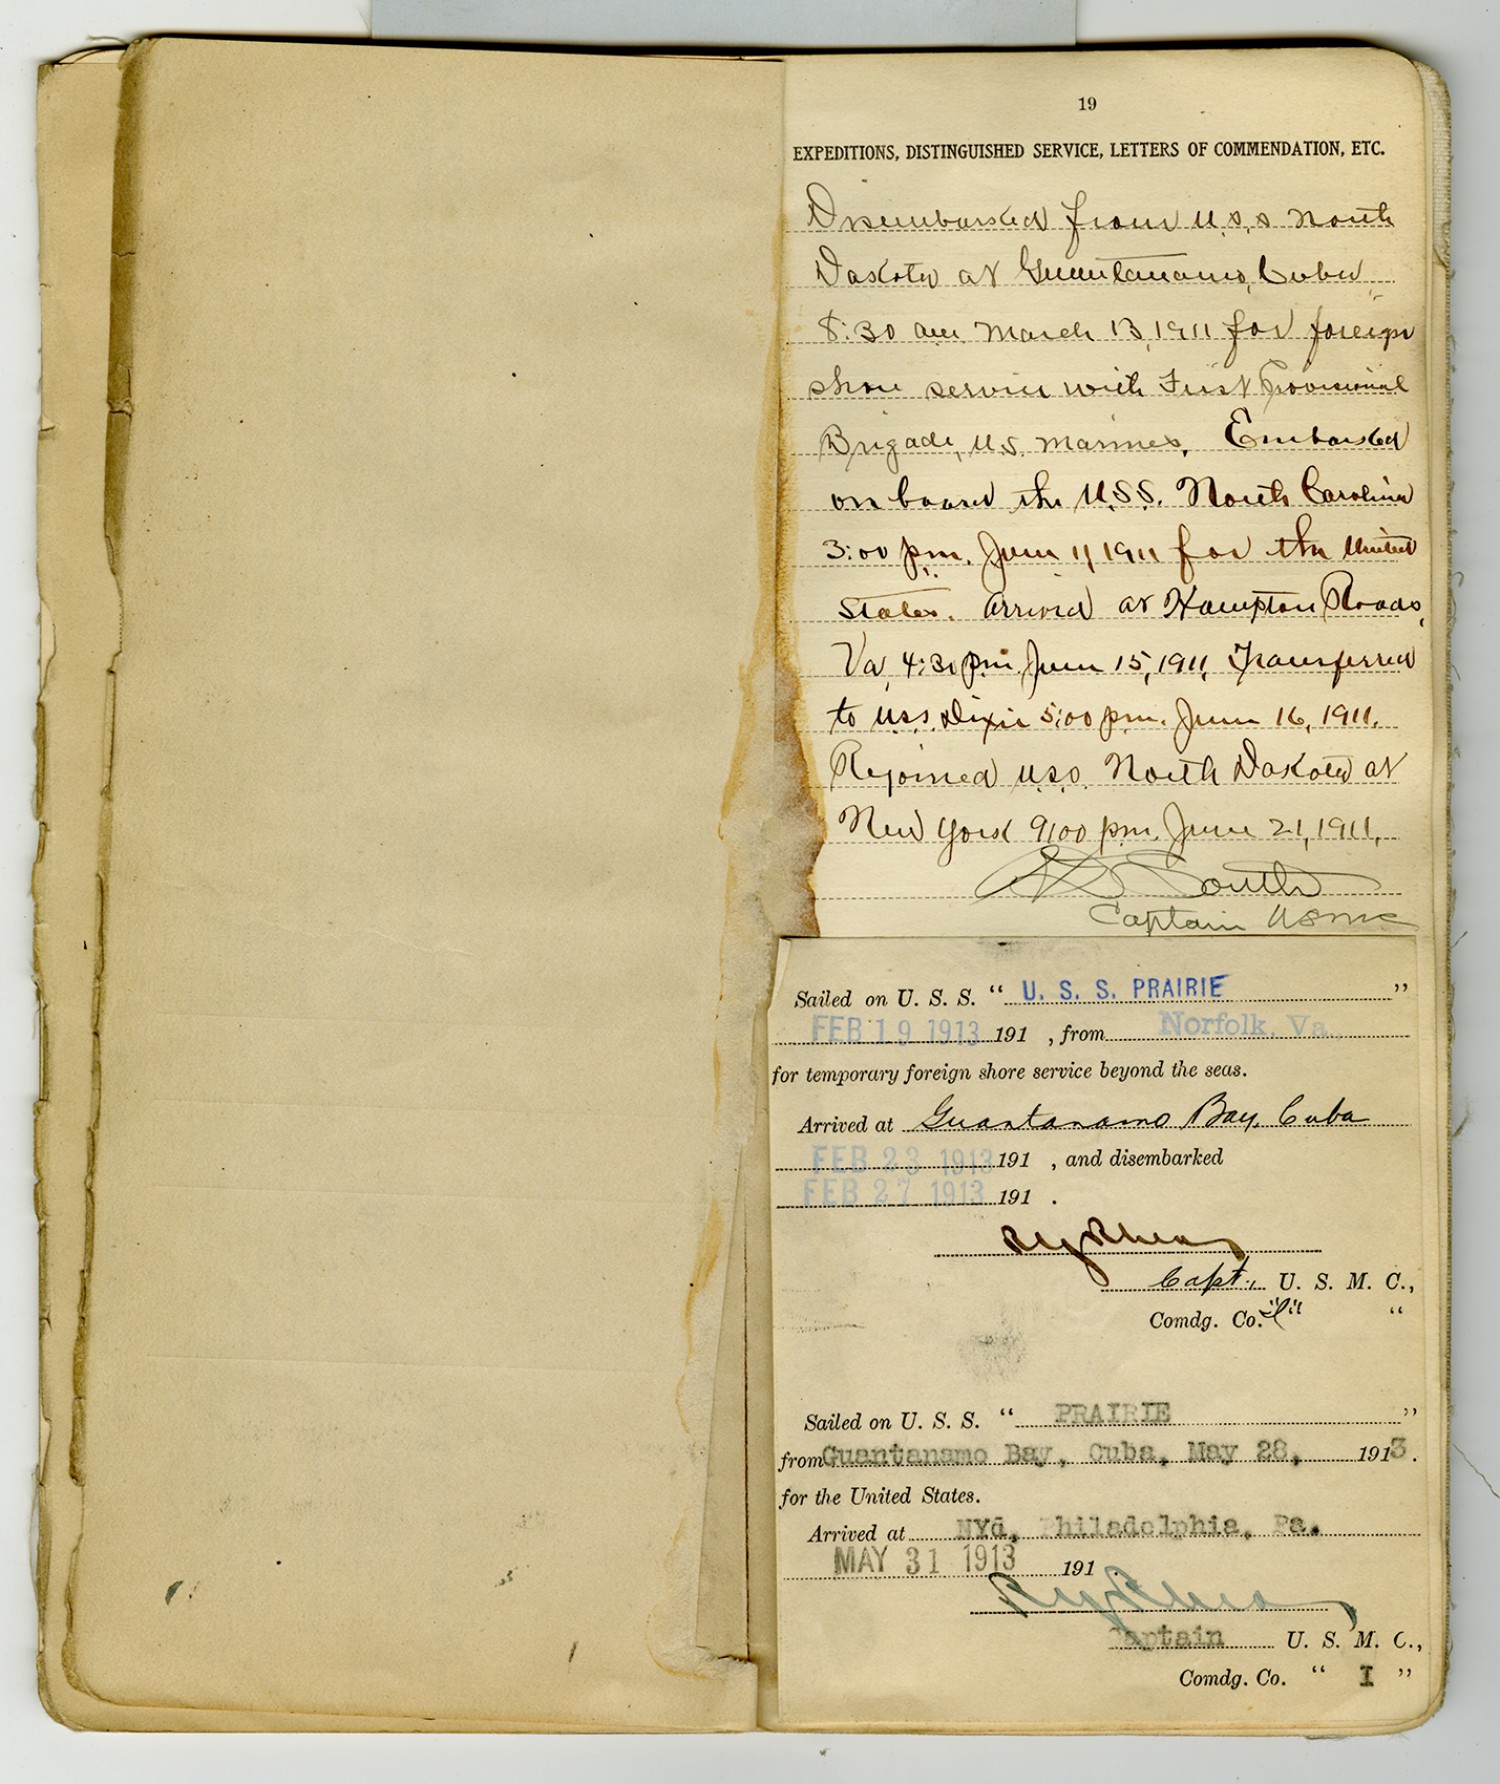 19
EXPEDITIONS, DISTINGUISHED SERVICE, LETTERS OF COMMENDATION, ETC.
Disembarked from U.S.S North
Dakota at Guantanamo, Cuba,
8:30 am March 13, 1911 for foreign
shore service with First Provisional
Brigade, U.S. Marines. Embarked
on board the U.S.S. North Carolina
3:00 p.m. June 11, 1911 for the United
States. Arrived at Hampton Roads,
Va, 4:30 p.m. June 15, 1911, Transferred
to U.S.S. Dixie 5:00 p.m. June 16, 1911.
Rejoined U.S.S. North Dakota at
New York 9:00 p.m. June 21, 1911,
Captain USMC
Sailed on U. S. S. “ U. S. S. PRAIRIE ”
FEB 19 1913 191 , from Norfolk, Va.,
for temporary foreign shore service beyond the seas.
Arrived at Guantanamo Bay, Cuba
FEB 23 1913 191 , and disembarked
FEB 27 1913 191 .
Capt., U. S. M. C.,
Comdg. Co. "I" “
Sailed on U. S. S. “ PRAIRIE ”
from Guantanamo Bay, Cuba, May 28, 1913.
for the United States.
Arrived at NYd, Philadelphia, Pa.
MAY 31 1913 191 .
Captain U. S. M. C.,
Comdg. Co. “ I ”